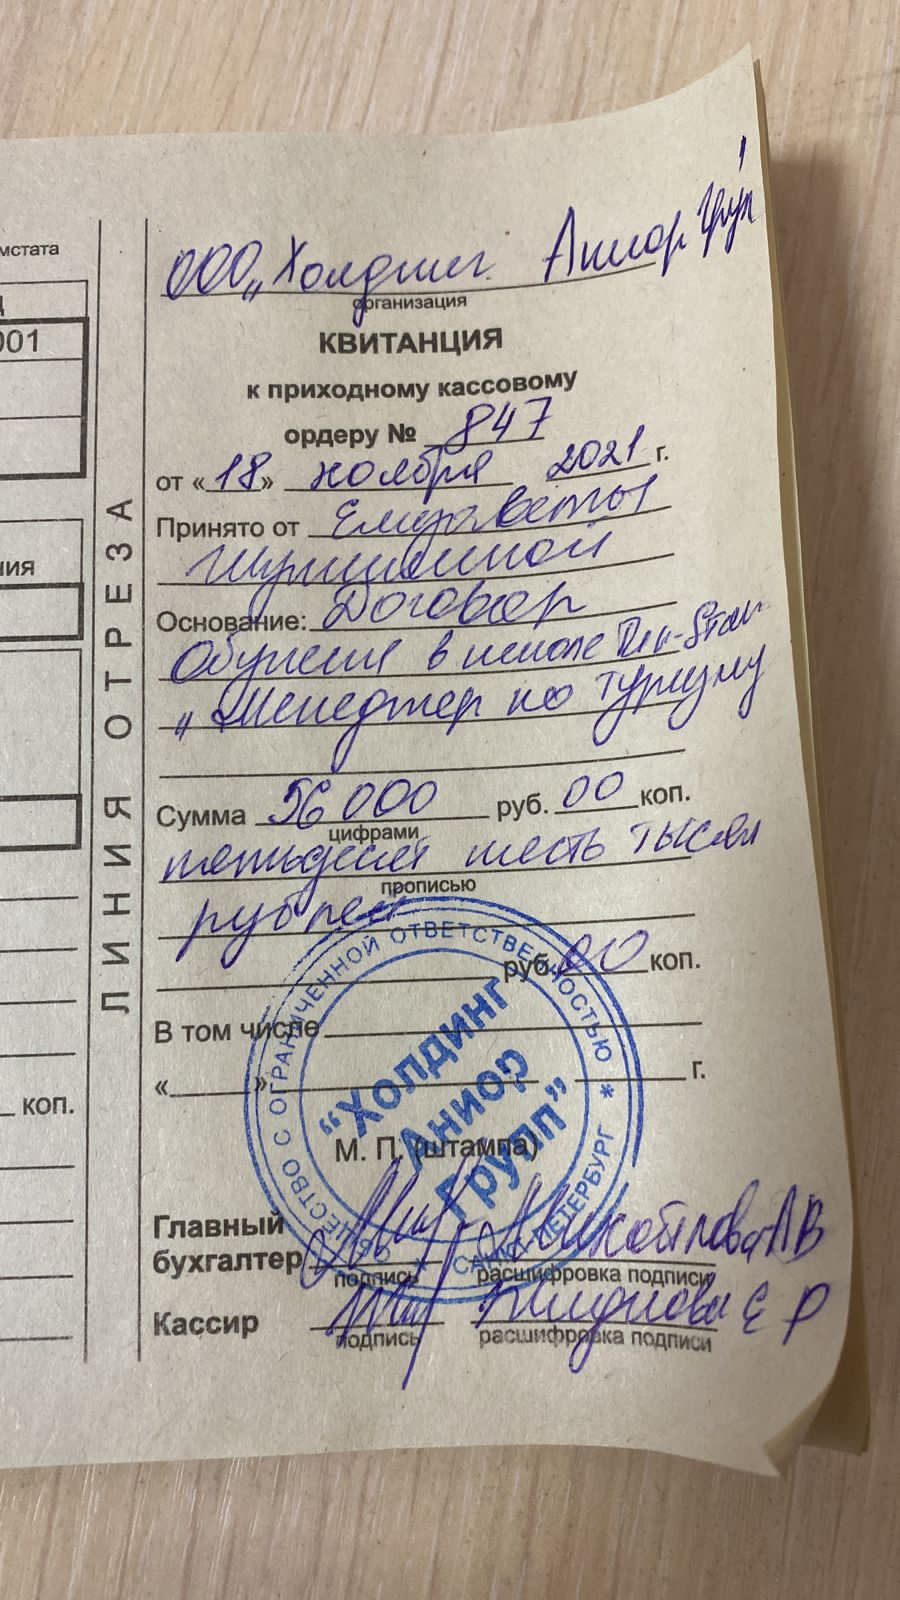 мстата
001
ния
коп.
ЛИНИЯ ОТРЕЗА
ООО „Холдинг Аниор Груп
организация
КВИТАНЦИЯ
к приходному кассовому
ордеру № 847
от «18» ноября 2021 г.
Принято от Елизаветы
Основание: Договор
Обучения в школе
„Менеджер по туризму
Сумма 56 000 руб. 00 коп.
цифрами
пятьдесят шесть тысяч
прописью
рублей
руб. 00 коп.
В том числе
« » г.
М. П. (штампа)
ОБЩЕСТВО С ОГРАНИЧЕННОЙ ОТВЕТСТВЕННОСТЬЮ * САНКТ-ПЕТЕРБУРГ *
“Холдинг
Аниор
Групп”
Главный
бухгалтер
подпись расшифровка подписи
Кассир Е Р
подпись расшифровка подписи